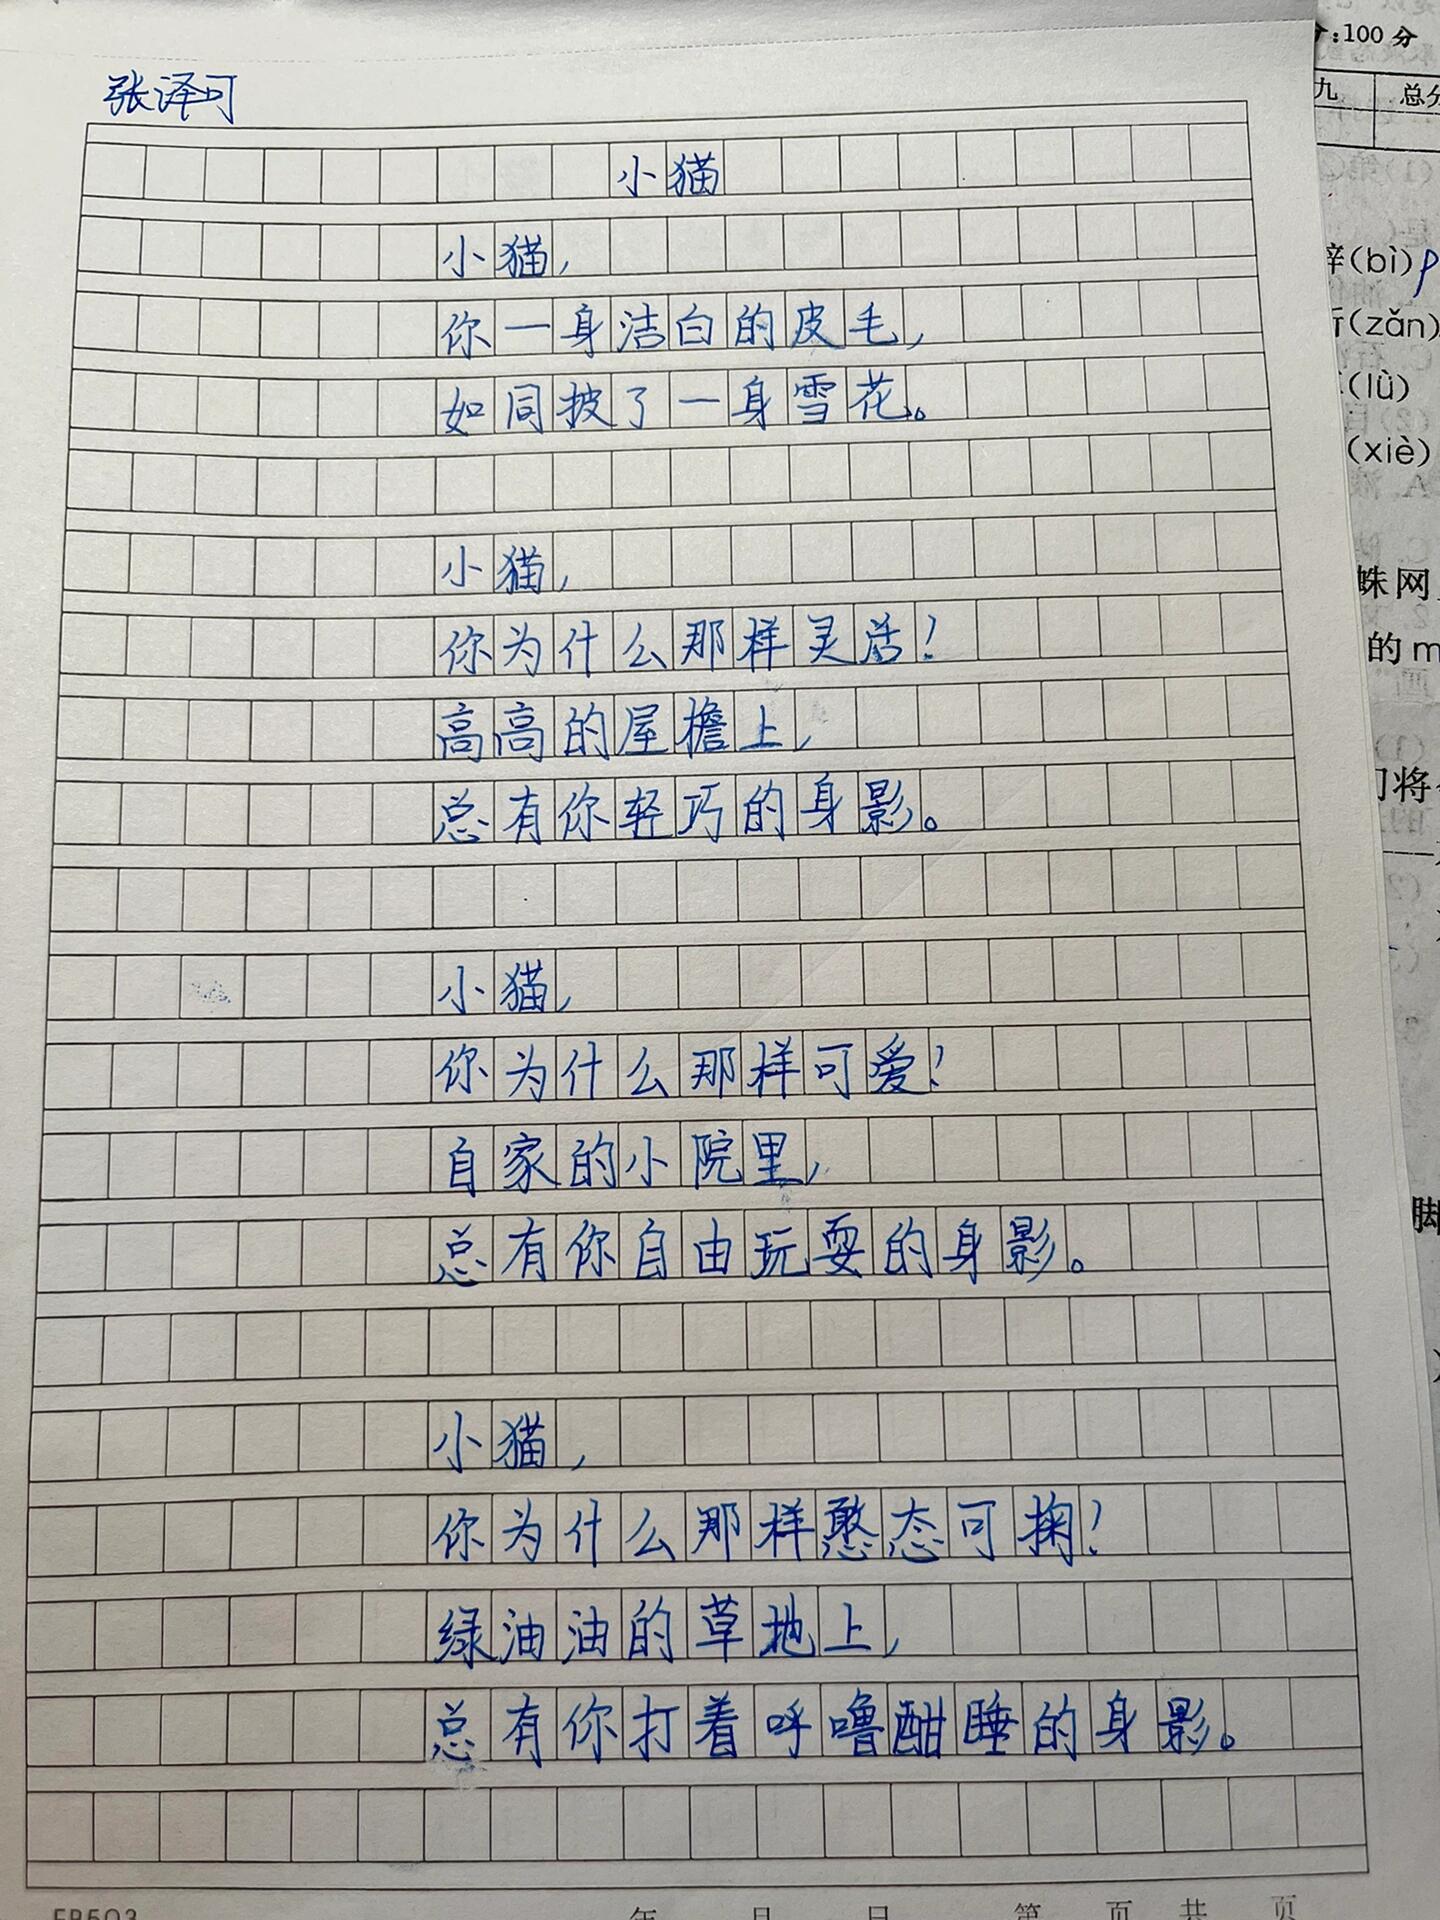 张泽可
小猫
小猫,
你一身洁白的皮毛,
如同披了一身雪花。
小猫,
你为什么那样灵活!
高高的屋檐上,
总有你轻巧的身影。
小猫,
你为什么那样可爱!
自家的小院里,
总有你自由玩耍的身影。
小猫,
你为什么那样憨态可掬!
绿油油的草地上,
总有你打着呼噜酣睡的身影。
年 月 日 第 页 共 页
:100分
九 总分
(bì)
(zǎn)
(lǜ)
(xiè)
蛛网
的m
们将
脚